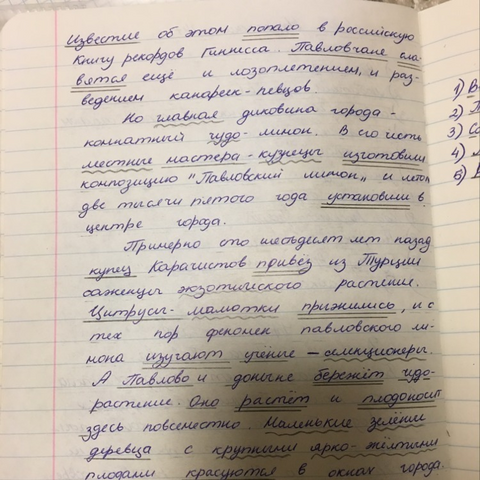 Известие об этом попало в российскую
Книгу рекордов Гиннесса. Павловчане сла-
вятся ещё и лозоплетением, и раз-
ведением канареек-певцов.
Но главная диковина города -
комнатный чудо-лимон. В его честь
местные мастера-кузнецы изготовили
композицию "Павловский лимон" и летом
две тысячи пятого года установили в
центре города.
Примерно сто шестьдесят лет назад
купец Карачистов привёз из Турции
саженцы экзотического растения.
Цитрусы-мамотки прижились, и с
тех пор феномен павловского ли-
мона изучают учёные - селекционеры.
А Павлово и доныне бережёт чудо-
растение. Оно растёт и плодоносит
здесь повсеместно. Маленькие зелёные
деревца с крупными ярко-жёлтыми
плодами красуются в окнах города.
1) В
2) П
3) Со
4)
5) В